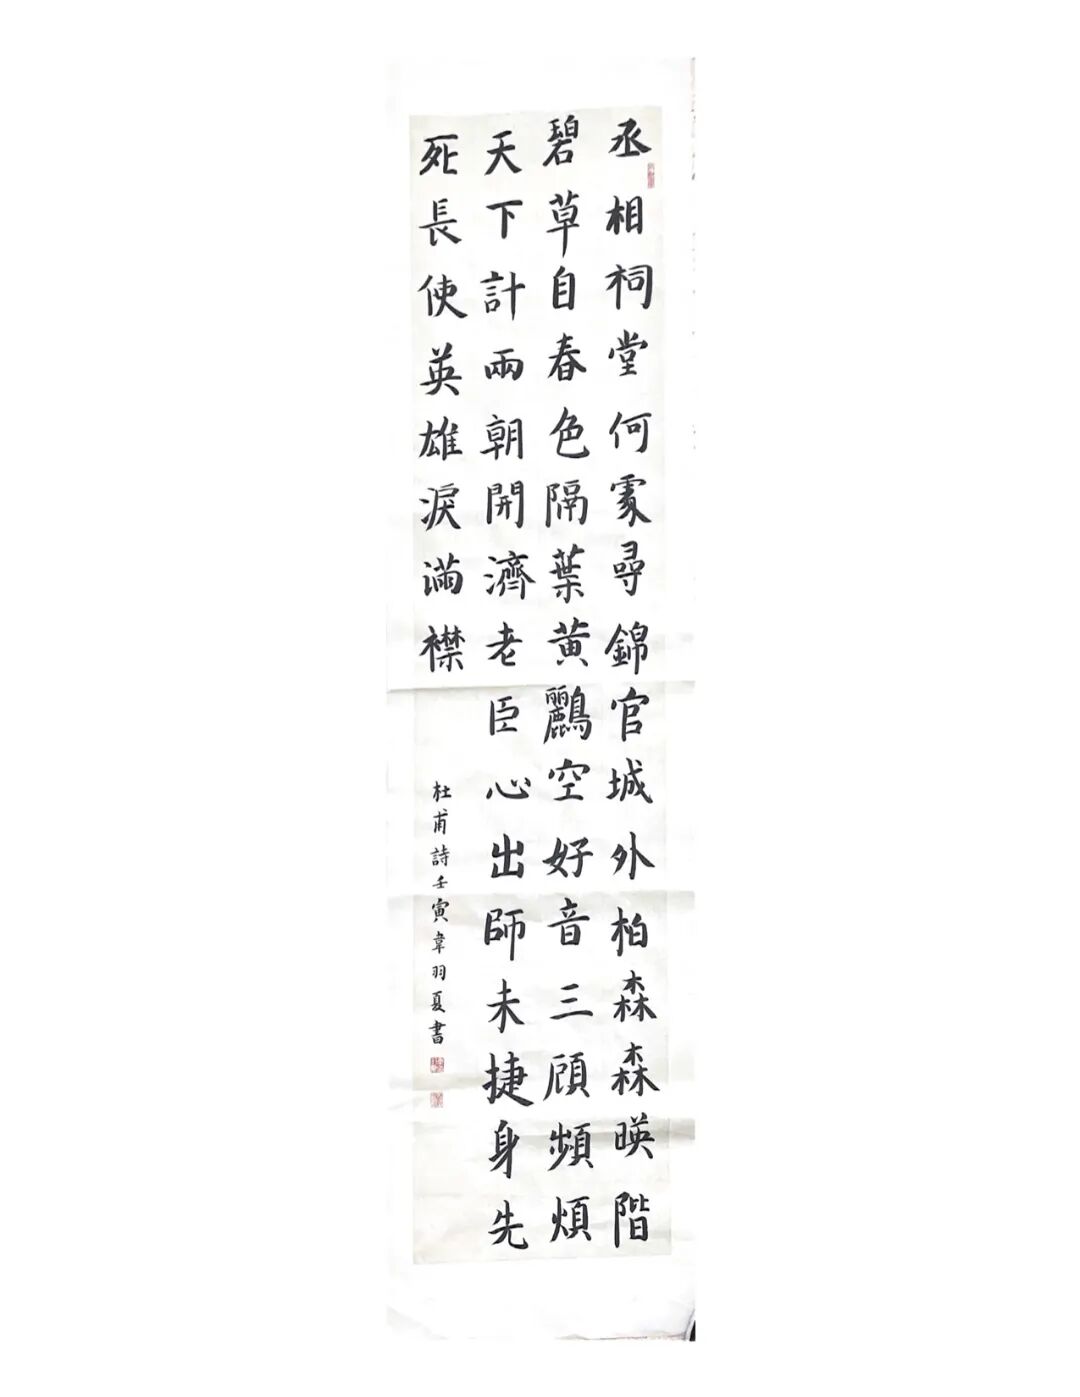 丞相祠堂何處尋錦官城外柏森森暎階
碧草自春色隔葉黄鸝空好音三顧頻煩
天下計兩朝開濟老臣心出師未捷身先
死長使英雄淚滿襟
杜甫詩壬寅韋羽夏書